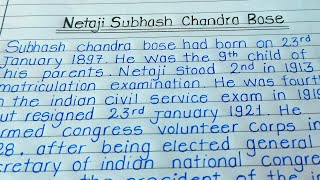 Netaji Subhash Chandra Bose
Subhash chandra bose had born on 23rd
January 1897. He was the 9th child of
his parents. Netaji stood 2nd in 1913
matriculation examination. He was fourth
the indian civil service exam in 1919
but resigned 23rd january 1921. He
congress volunteer corps in
28. after being elected general
of indian national
the president of the